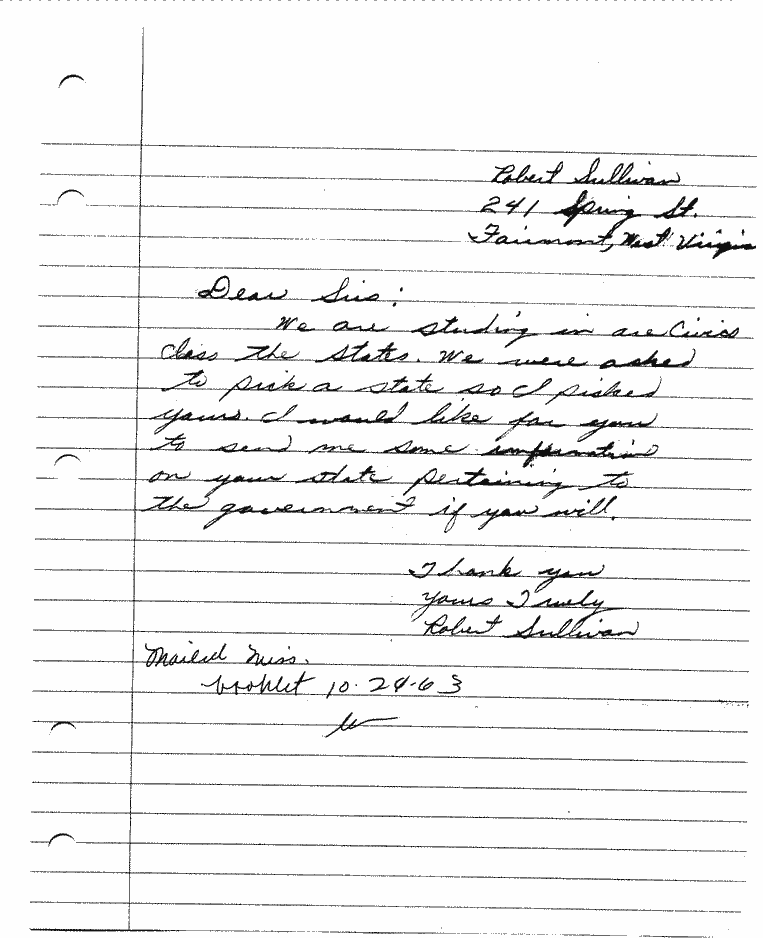 Robert Sullivan
241 Spring St.
Fairmont, West Virgin
Dear Sirs:
We are studing in are Civics
class the states. We were asked
to pick a state so I picked
yours. I would like for you
to send me some information
on your state pertaining to
the government if you will.
Thank you
Yours Truely
Robert Sullivan
Mailed Miss.
booklet 10-24-63